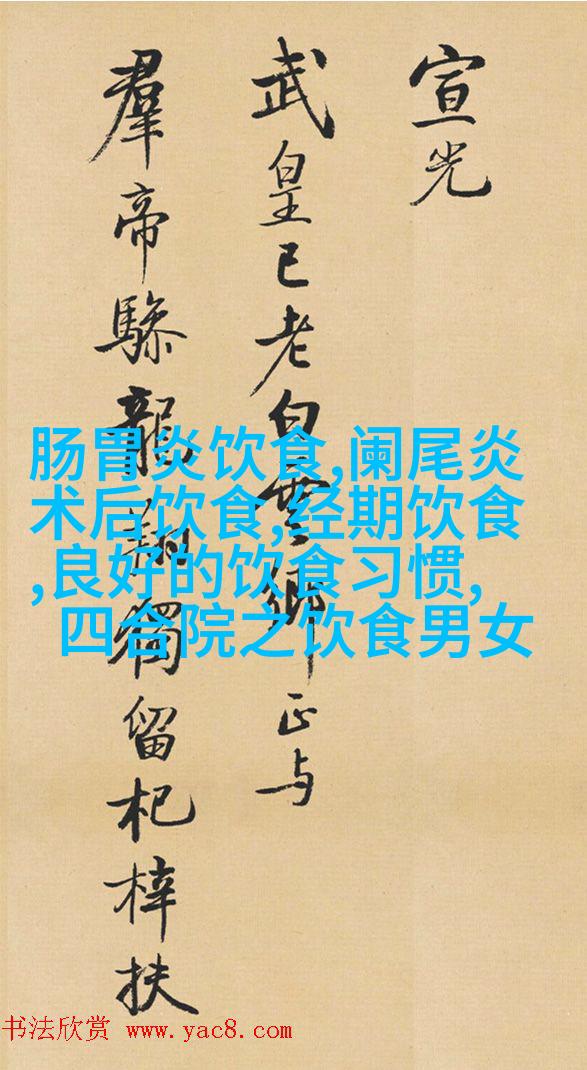 宣光
武皇已老白雲鄉正与
羣帝驂龍翔獨留杞梓扶
肠胃炎饮食,阑尾炎
术后饮食,经期饮食
,良好的饮食习惯,
四合院之饮食男女
书法欣赏 www.yac8.com